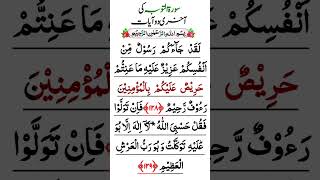 سورۃ التوبہ کی
آخری دو آیات
بِسْمِ اللهِ الرَّحْمٰنِ الرَّحِيْمِ
لَقَدْ جَآءَكُمْ رَسُوْلٌ مِّنْ
اَنْفُسِكُمْ عَزِيْزٌ عَلَيْهِ مَا عَنِتُّمْ
حَرِيْصٌ عَلَيْكُمْ بِالْمُؤْمِنِيْنَ
رَءُوْفٌ رَّحِيْمٌ ﴿۱۲۸﴾ فَاِنْ تَوَلَّوْا
فَقُلْ حَسْبِيَ اللهُ لَآ اِلٰهَ اِلَّا هُوَ
عَلَيْهِ تَوَكَّلْتُ وَهُوَ رَبُّ الْعَرْشِ
الْعَظِيْمِ ﴿۱۲۹﴾